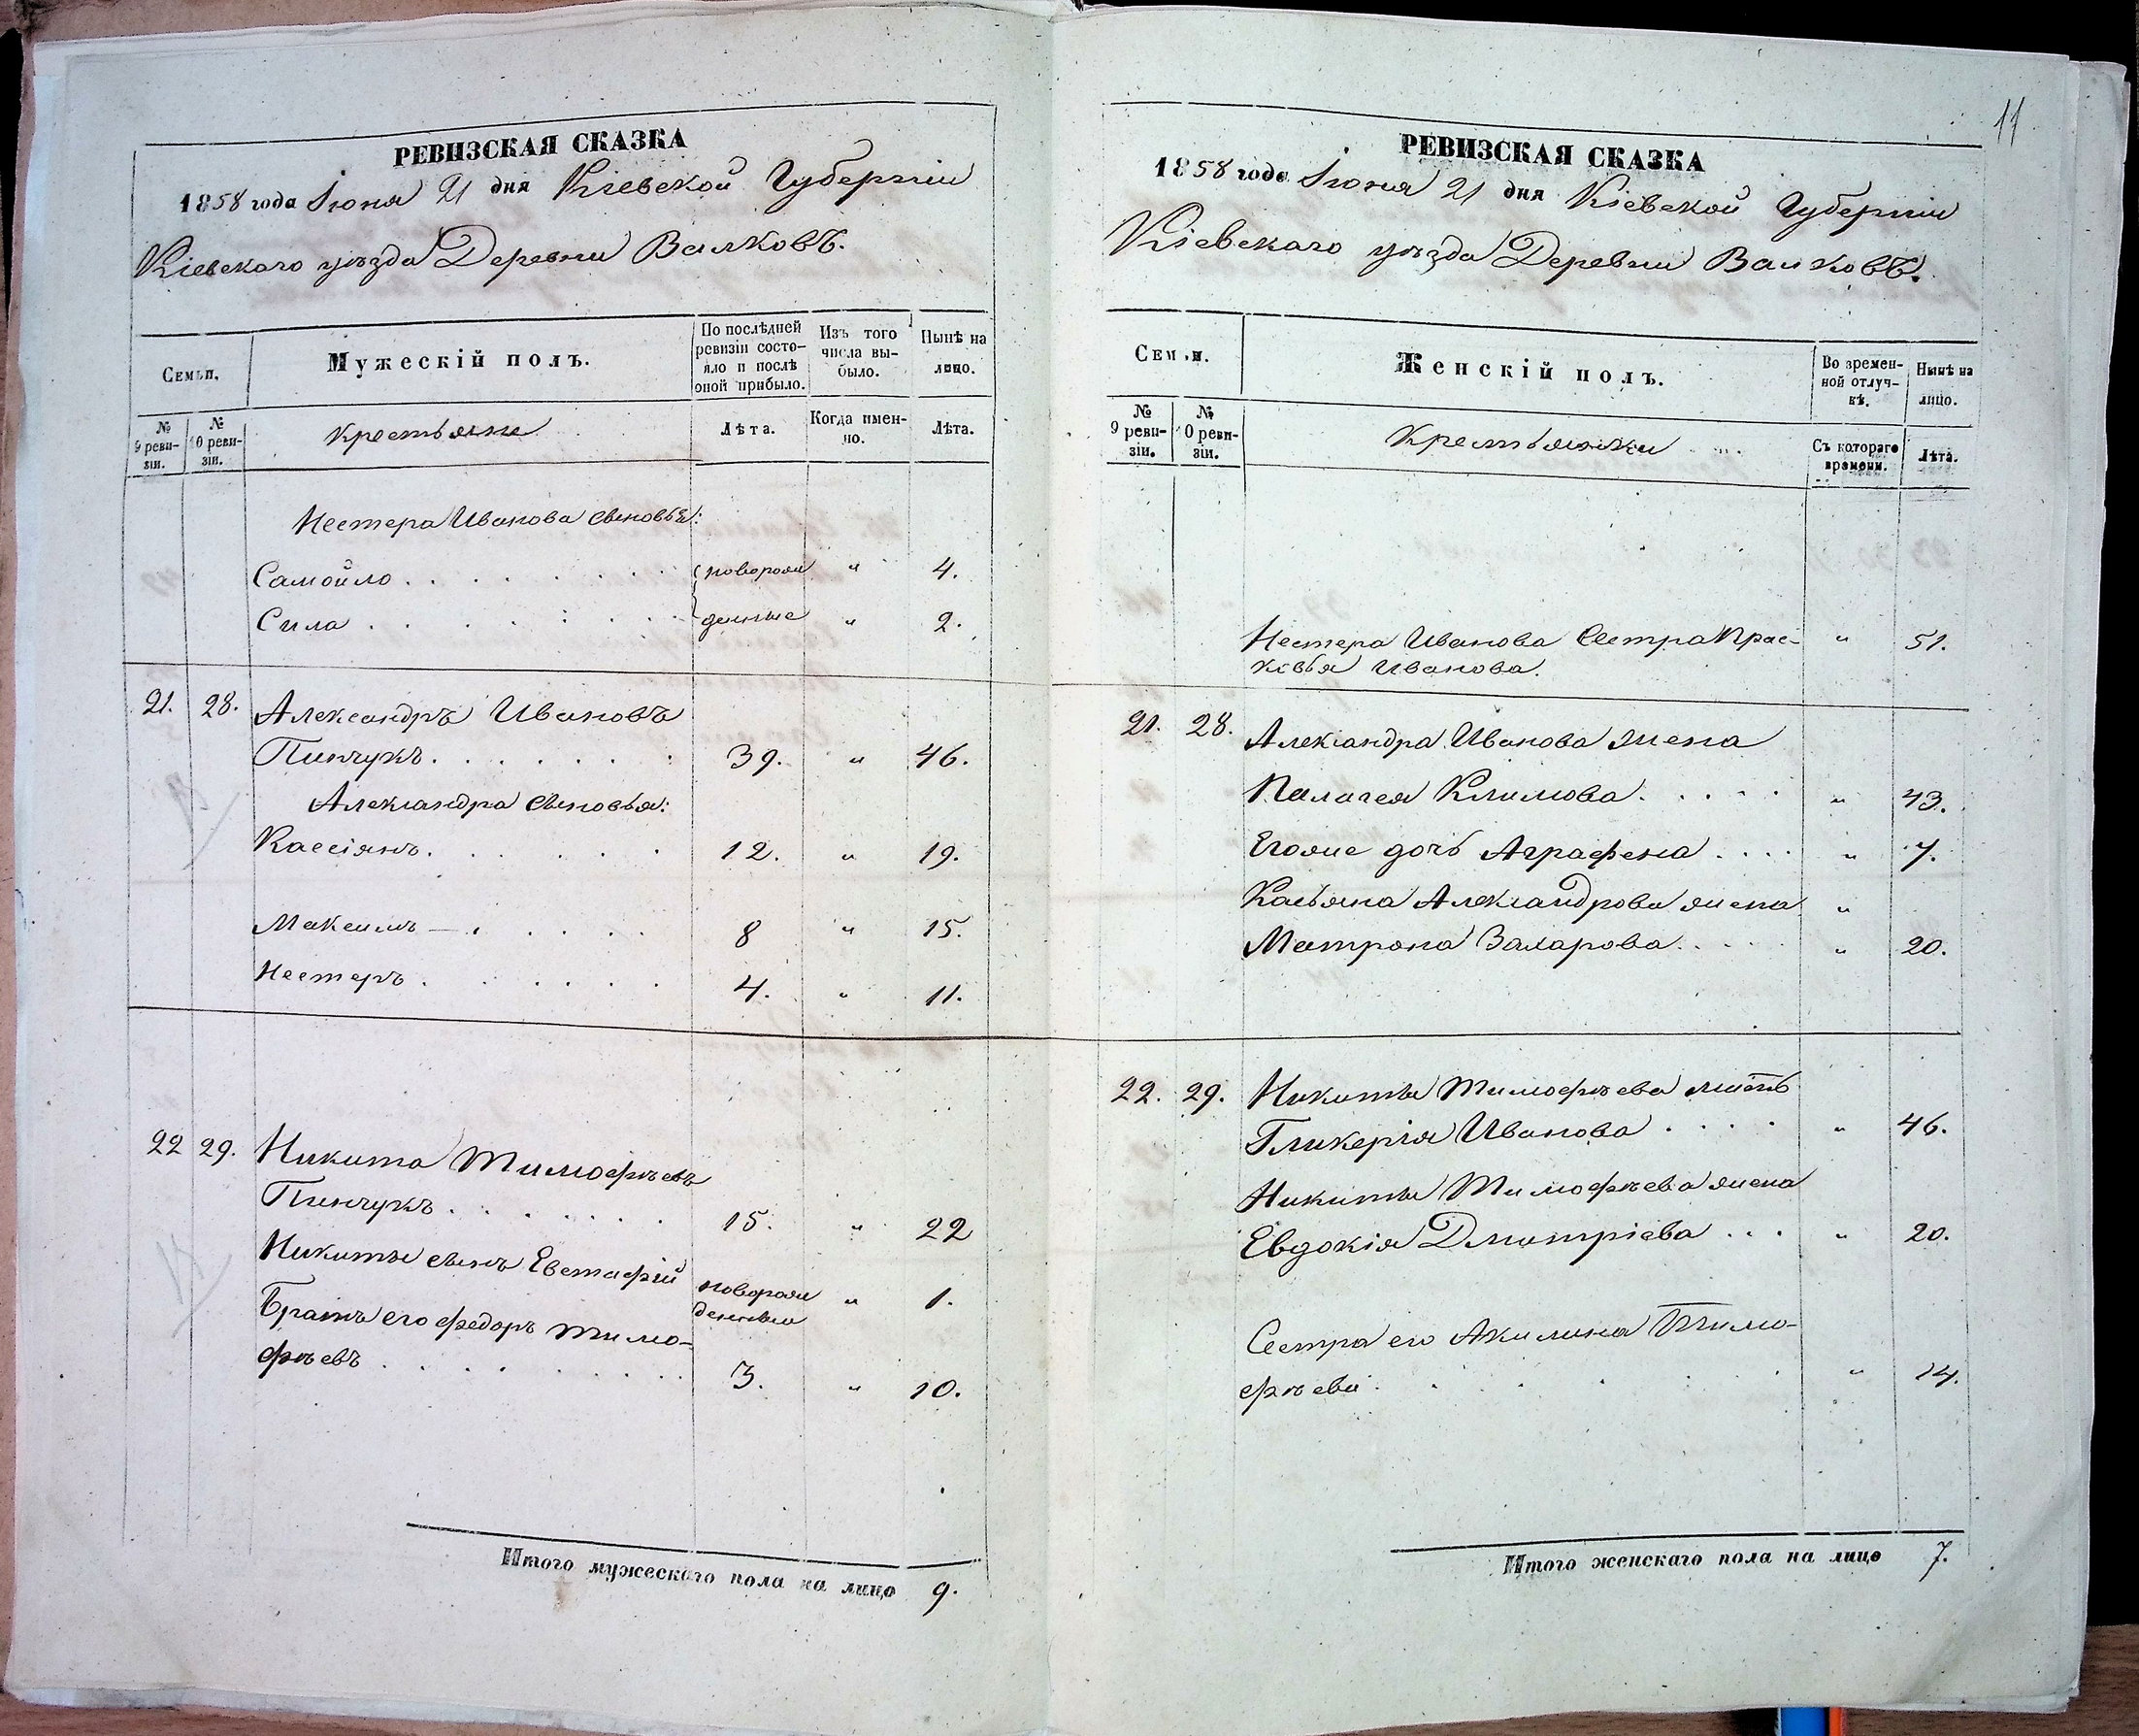 РЕВИЗСКАЯ СКАЗКА
1858 года Іюня 21 дня Кіевской Губерніи
Кіевскаго уѣзда Деревни Валковъ.
Семьи.
Мужескій полъ.
По послѣдней ревизіи состояло и послѣ оной прибыло.
Изъ того числа выбыло.
Нынѣ на лицо.
№ 9 ревизіи.
№ 10 ревизіи.
Крестьяне
Лѣта.
Когда именно.
Лѣта.
Нестера Иванова сыновья:
Самойло . . . новорож „ 4.
Сила . . . денные „ 2.
21. 28. Александръ Ивановъ
Пинчукъ . . . 39. „ 46.
Александра сыновья:
Кассіянъ . . . 12. „ 19.
Максимъ . . . 8 „ 15.
Нестеръ . . . 4. „ 11.
22 29. Никита Тимофѣевъ
Пинчукъ . . . 15. „ 22
Никиты сынъ Евстафій новорож „ 1.
денный
Братъ его Федоръ Тимо-
фѣевъ . . . 3. „ 10.
Итого мужескаго пола на лицо 9.
11
РЕВИЗСКАЯ СКАЗКА
1858 года Іюня 21 дня Кіевской Губерніи
Кіевскаго уѣзда Деревни Валковъ.
Семьи.
Женскій полъ.
Во времен-
ной отлуч-
кѣ.
Нынѣ на
лицо.
№ 9 реви-
зіи.
№ 10 реви-
зіи.
Крестьянки
Съ котораго
времени.
Лѣта.
Нестера Иванова Сестра Прас- „ 51.
ковья Иванова.
21. 28. Александра Иванова жена
Палагея Климова . . . „ 43.
Егоже дочь Аграфена . . . „ 7.
Касьяна Александрова жена „
Матрона Захарова . . . „ 20.
22. 29. Никиты Тимофѣева мать
Гликерія Иванова . . . „ 46.
Никиты Тимофѣева жена
Евдокія Дмитріева . . . „ 20.
Сестра его Акилина Тимо-
фѣева . . . „ 14.
Итого женскаго пола на лицо 7.